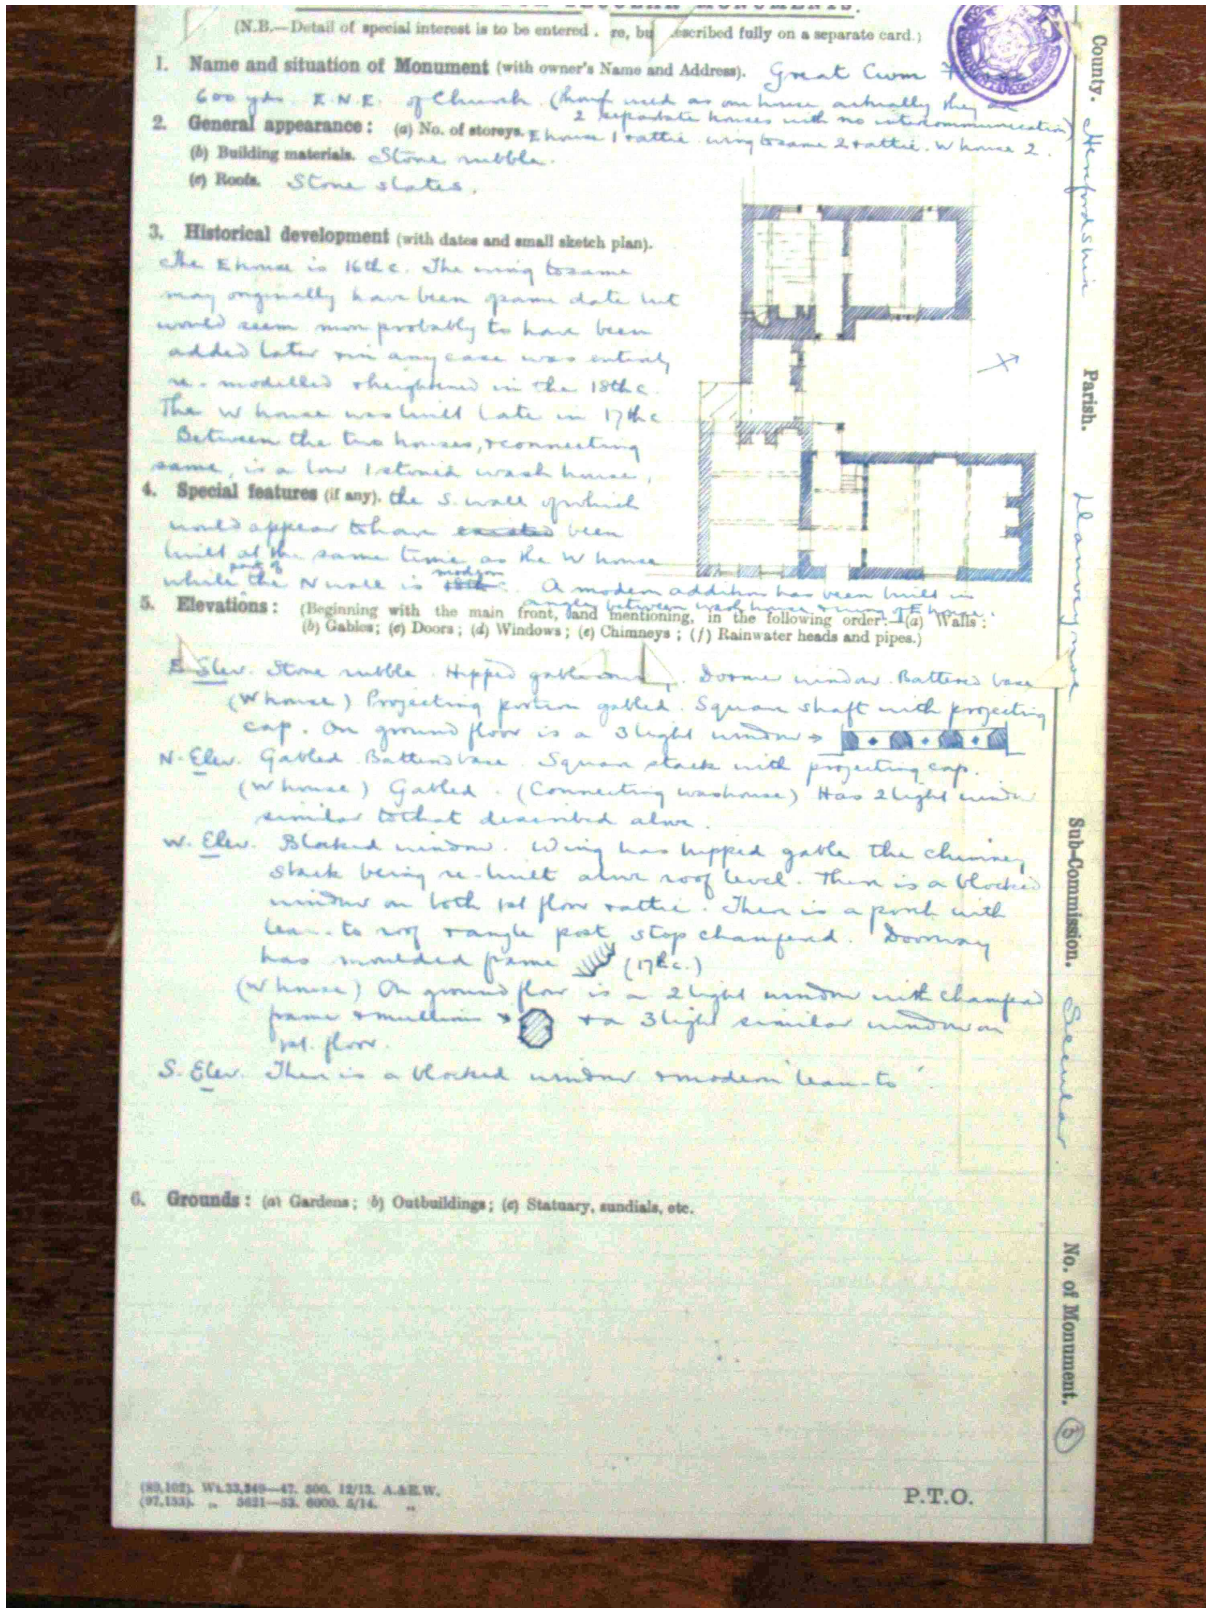 FOR SECULAR MONUMENTS.
(N.B.—Detail of special interest is to be entered . re, bu escribed fully on a separate card.)
1. Name and situation of Monument (with owner's Name and Address). Great Cwm
600 yds. E.N.E. of Church. (though used as one house actually they are
2 separate houses with no intercommunication)
2. General appearance: (a) No. of storeys. E house 1 + attic. wing to same 2 + attic. W house 2.
(b) Building materials. Stone rubble.
(c) Roofs. Stone slates.
3. Historical development (with dates and small sketch plan).
The E house is 16th c. The wing to same
may originally have been of same date but
would seem more probably to have been
added later & in any case was entirely
re-modelled & heightened in the 18th c.
The W house was built late in 17th c.
Between the two houses, & connecting
same, is a low 1 storied wash house,
4. Special features (if any). the S. wall of which
would appear to have existed been
built at the same time as the W house
while part of the N wall is 18th modern. A modern addition has been built in
angle between wash house & wing of E house.
5. Elevations: (Beginning with the main front, and mentioning, in the following order:—(a) Walls;
(b) Gables; (c) Doors; (d) Windows; (e) Chimneys; (f) Rainwater heads and pipes.)
E. Elev. Stone rubble. Hipped gable. Dormer window. Battered base
(W house) Projecting portion gabled. Square shaft with projecting
cap. On ground floor is a 3 light window →
N. Elev. Gabled. Battered base. Square stack with projecting cap.
(W house) Gabled. (Connecting washouse) Has 2 light window
similar to that described above.
W. Elev. Blocked window. Wing has hipped gable the chimney
stack being re-built above roof level. There is a blocked
window on both 1st floor & attic. There is a porch with
lean-to roof & angle post stop chamfered. Doorway
has moulded frame (17th c.)
(W house) On ground floor is a 2 light window with chamfered
frame & mullions → & a 3 light similar window on
1st. floor.
S. Elev. There is a blocked window & modern 'lean-to'.
6. Grounds: (a) Gardens; b) Outbuildings; (c) Statuary, sundials, etc.
(89,102). Wt.33,349—47. 500. 12/13. A.&E.W.
(97,153). „ 5621—53. 6000. 5/14. „
P.T.O.
County. Herefordshire
Parish. Llanveynoe
Sub-Commission. Secular.
No. of Monument. (3)